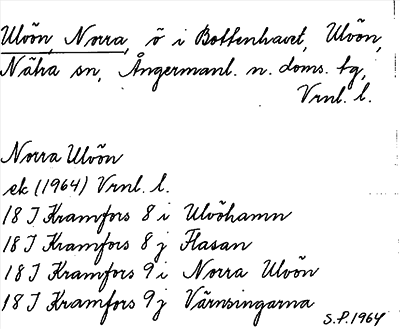 Ulvön, Norra, ö i Bottenhavet, Ulvön,
Nätra sn, Ångermanl. n. doms. tg,
Vrnl. l.
Norra Ulvön
ek (1964) Vrnl. l.
18 I Kramfors 8 i Ulvöhamn
18 I Kramfors 8 j Flasan
18 I Kramfors 9 i Norra Ulvön
18 I Kramfors 9 j Värnsingarna
S.P. 1964